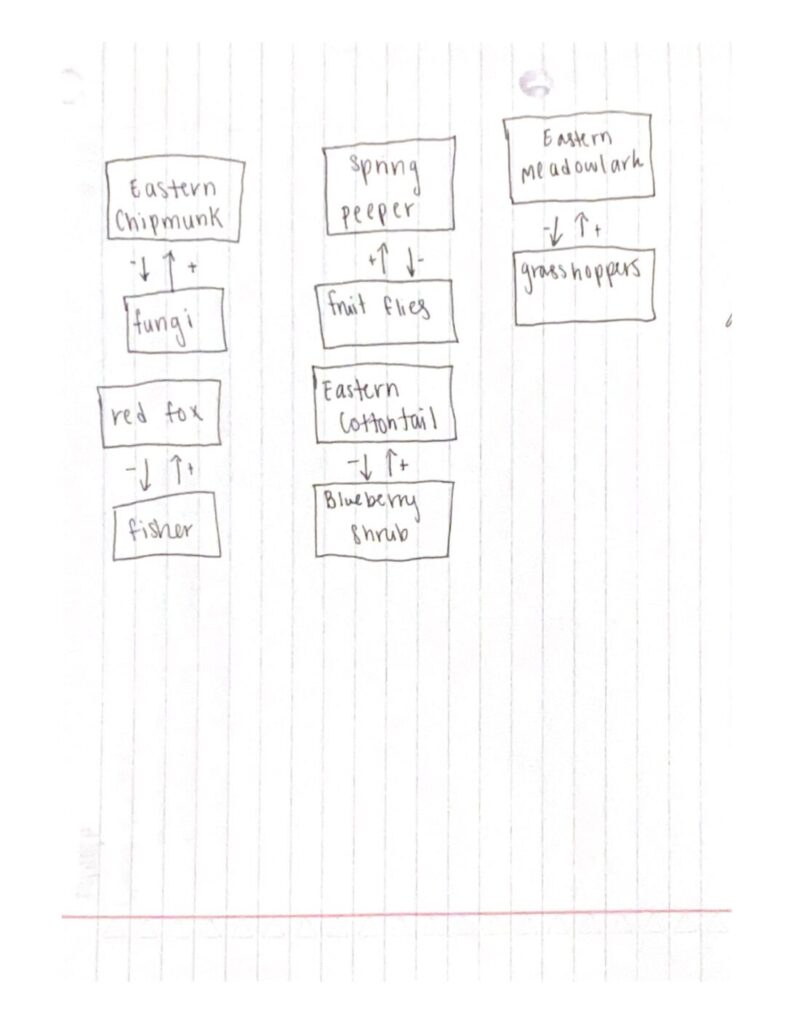 Eastern
Chipmunk
- +
fungi
red fox
- +
fisher
Spring
peeper
+ -
fruit flies
Eastern
Cottontail
- +
Blueberry
shrub
Eastern
Meadowlark
- +
grasshoppers